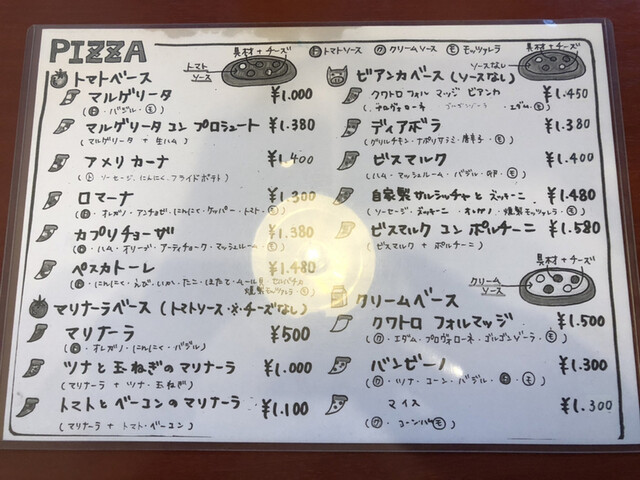 PIZZA
具材+チーズ
トマトソース
㋗クリームソース
㋲モッツァレラ
トマトソース
トマトベース
マルゲリータ ¥1.000
(㋣・バジル・㋲)
マルゲリータ コン プロシュート ¥1.380
(マルゲリータ + 生ハム)
アメリカーナ ¥1.400
(㋣ソーセージ、にんにく、フライドポテト)
ロマーナ ¥1.300
(㋣・オレガノ・アンチョビ・にんにく・ケッパー・トマト・㋲)
カプリチョーザ ¥1.380
(㋣・ハム・オリーブ・アーティチョーク・マッシュルーム・㋲)
ペスカトーレ ¥1.480
(㋣・にんにく・えび・いか・たこ・ほたて・ムール貝・
燻製モッツァレラ・㋲)
マリナーラベース(トマトソース・※・チーズなし)
マリナーラ ¥500
(㋣・オレガノ・にんにく・バジル)
ツナと玉ねぎのマリナーラ ¥1.000
(マリナーラ + ツナ・玉ねぎ)
トマトとベーコンのマリナーラ ¥1.100
(マリナーラ + トマト・ベーコン)
具材+チーズ
ソースなし
ビアンカベース(ソースなし)
クワトロ フォル マッジ ビアンカ ¥1.450
ゴルゴンゾーラ・エダム・㋲)
ディアボラ ¥1.380
(グリルチキン・ナポリサラミ・唐辛子・㋲)
ビスマルク ¥1.400
(ハム・マッシュルーム・バジル・卵・㋲)
自家製サルシッチャとズッキーニ ¥1.480
(ソーセージ・ズッキーニ・オレガノ・燻製モッツァレラ・㋲)
ビスマルク コン ポルチーニ ¥1.580
(ビスマルク + ポルチーニ)
具材+チーズ
クリームソース
クリームベース
クワトロ フォルマッジ ¥1.500
(㋗・エダム・プロヴォローネ・ゴルゴンゾーラ・㋲)
バンビーノ ¥1.300
(㋗・ツナ・コーン・バジル・㋲)
マイス ¥1.300
(㋗・コーン